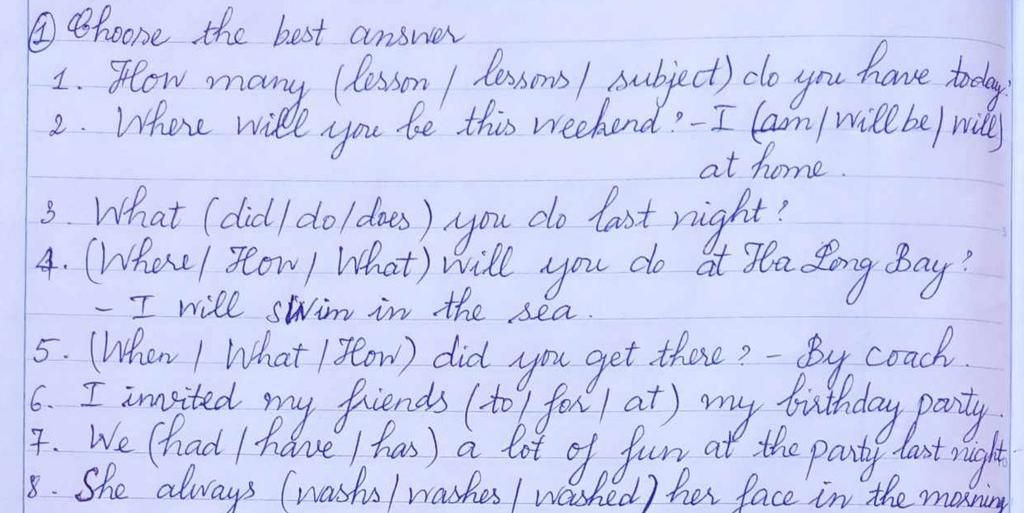 ① Choose the best answer
1. How many (lesson / lessons / subject) do you have today?
2. Where will you be this weekend? - I (am / will be / will)
at home.
3. What (did / do / does) you do last night?
4. (Where / How / What) will you do at Ha Long Bay?
- I will swim in the sea.
5. (When / What / How) did you get there? - By coach.
6. I invited my friends (to / for / at) my birthday party.
7. We (had / have / has) a lot of fun at the party last night.
8. She always (washs / washes / washed) her face in the morning